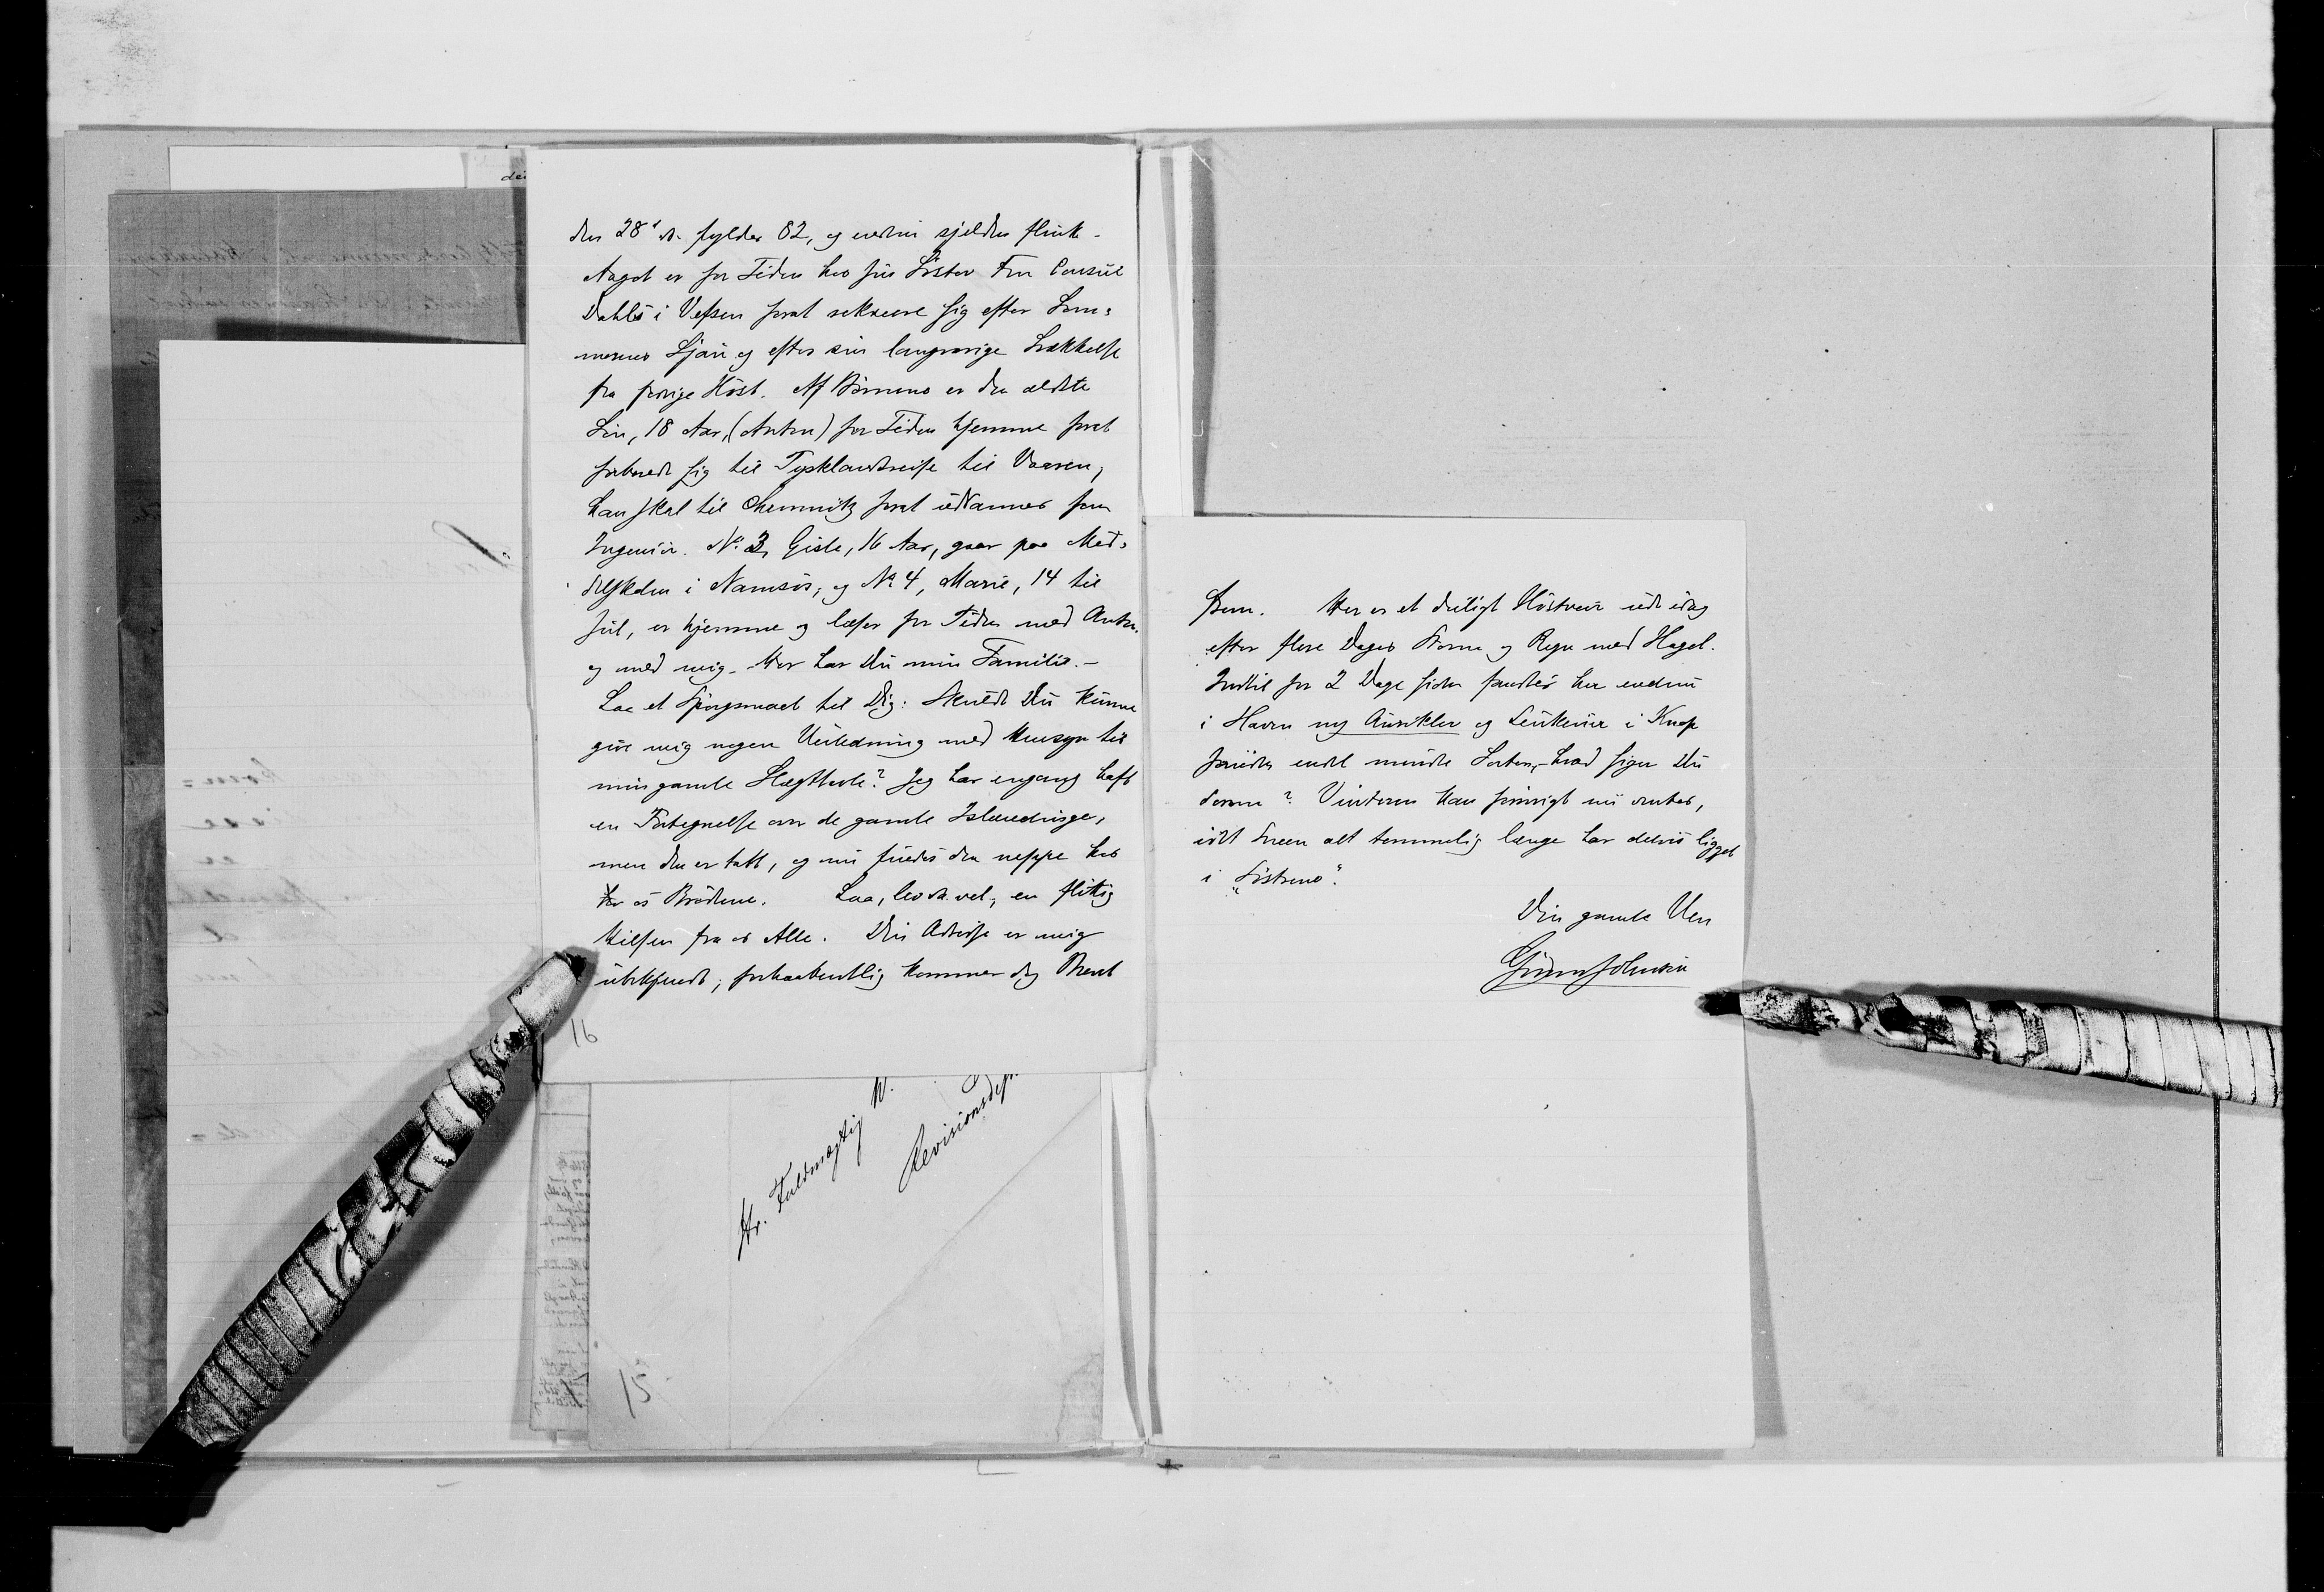 den 28de ds. fylder 82, og endnu sjelden flink.
Aagot er for Tiden hos sin Søster Fru Consul
Dahls i Vefsen forat rekreere sig efter Som=
merens Stræv og efter sin langvarige Svækkelse
fra forrige Høst. Af Børnene er den ældste
Søn, 18 Aar, (Anton) for Tiden hjemme forat
forberede sig til Tysklandsreise til Vaaren,
han skal til Chemnitz forat uddannes som
Ingeniør. No. 3, Gisle, 16 Aar, gaar paa Mid=
delskolen i Namsos, og No 4, Marie, 14 til
Jul, er hjemme og læser for Tiden med Anton
og med mig. Her har Du min Familie. –
Saa et Spørgsmaal til Dig: Skulde Du kunne
give mig nogen Veiledning med Hensyn til
min gamle Slægttavle? Jeg har engang havt
en Fortegnelse over de gamle Islændinge,
men den er tabt, og nu findes den neppe hos
os Brødrene. Saa, lev da vel, en flittig
Hilsen fra os Alle. Din Adresse er mig
ubekjendt; forhaabentlig kommer dog Brevet
16
Hr. Fuldmægtig
Revisionsdep.
15
frem. Her er et deiligt Høstveir ude idag
efter flere Dages Storm og Regn med Hagel.
Indtil for 2 Dage siden fandtes her endnu
i Haven ny Aurikler og Levkøier i Knop
foruden endel mindre Sorter, – hvad siger Du
derom? Vinteren kan forøvrigt nu ventes,
idet Sneen alt temmelig længe har delvis ligget
i
Din gamle Ven